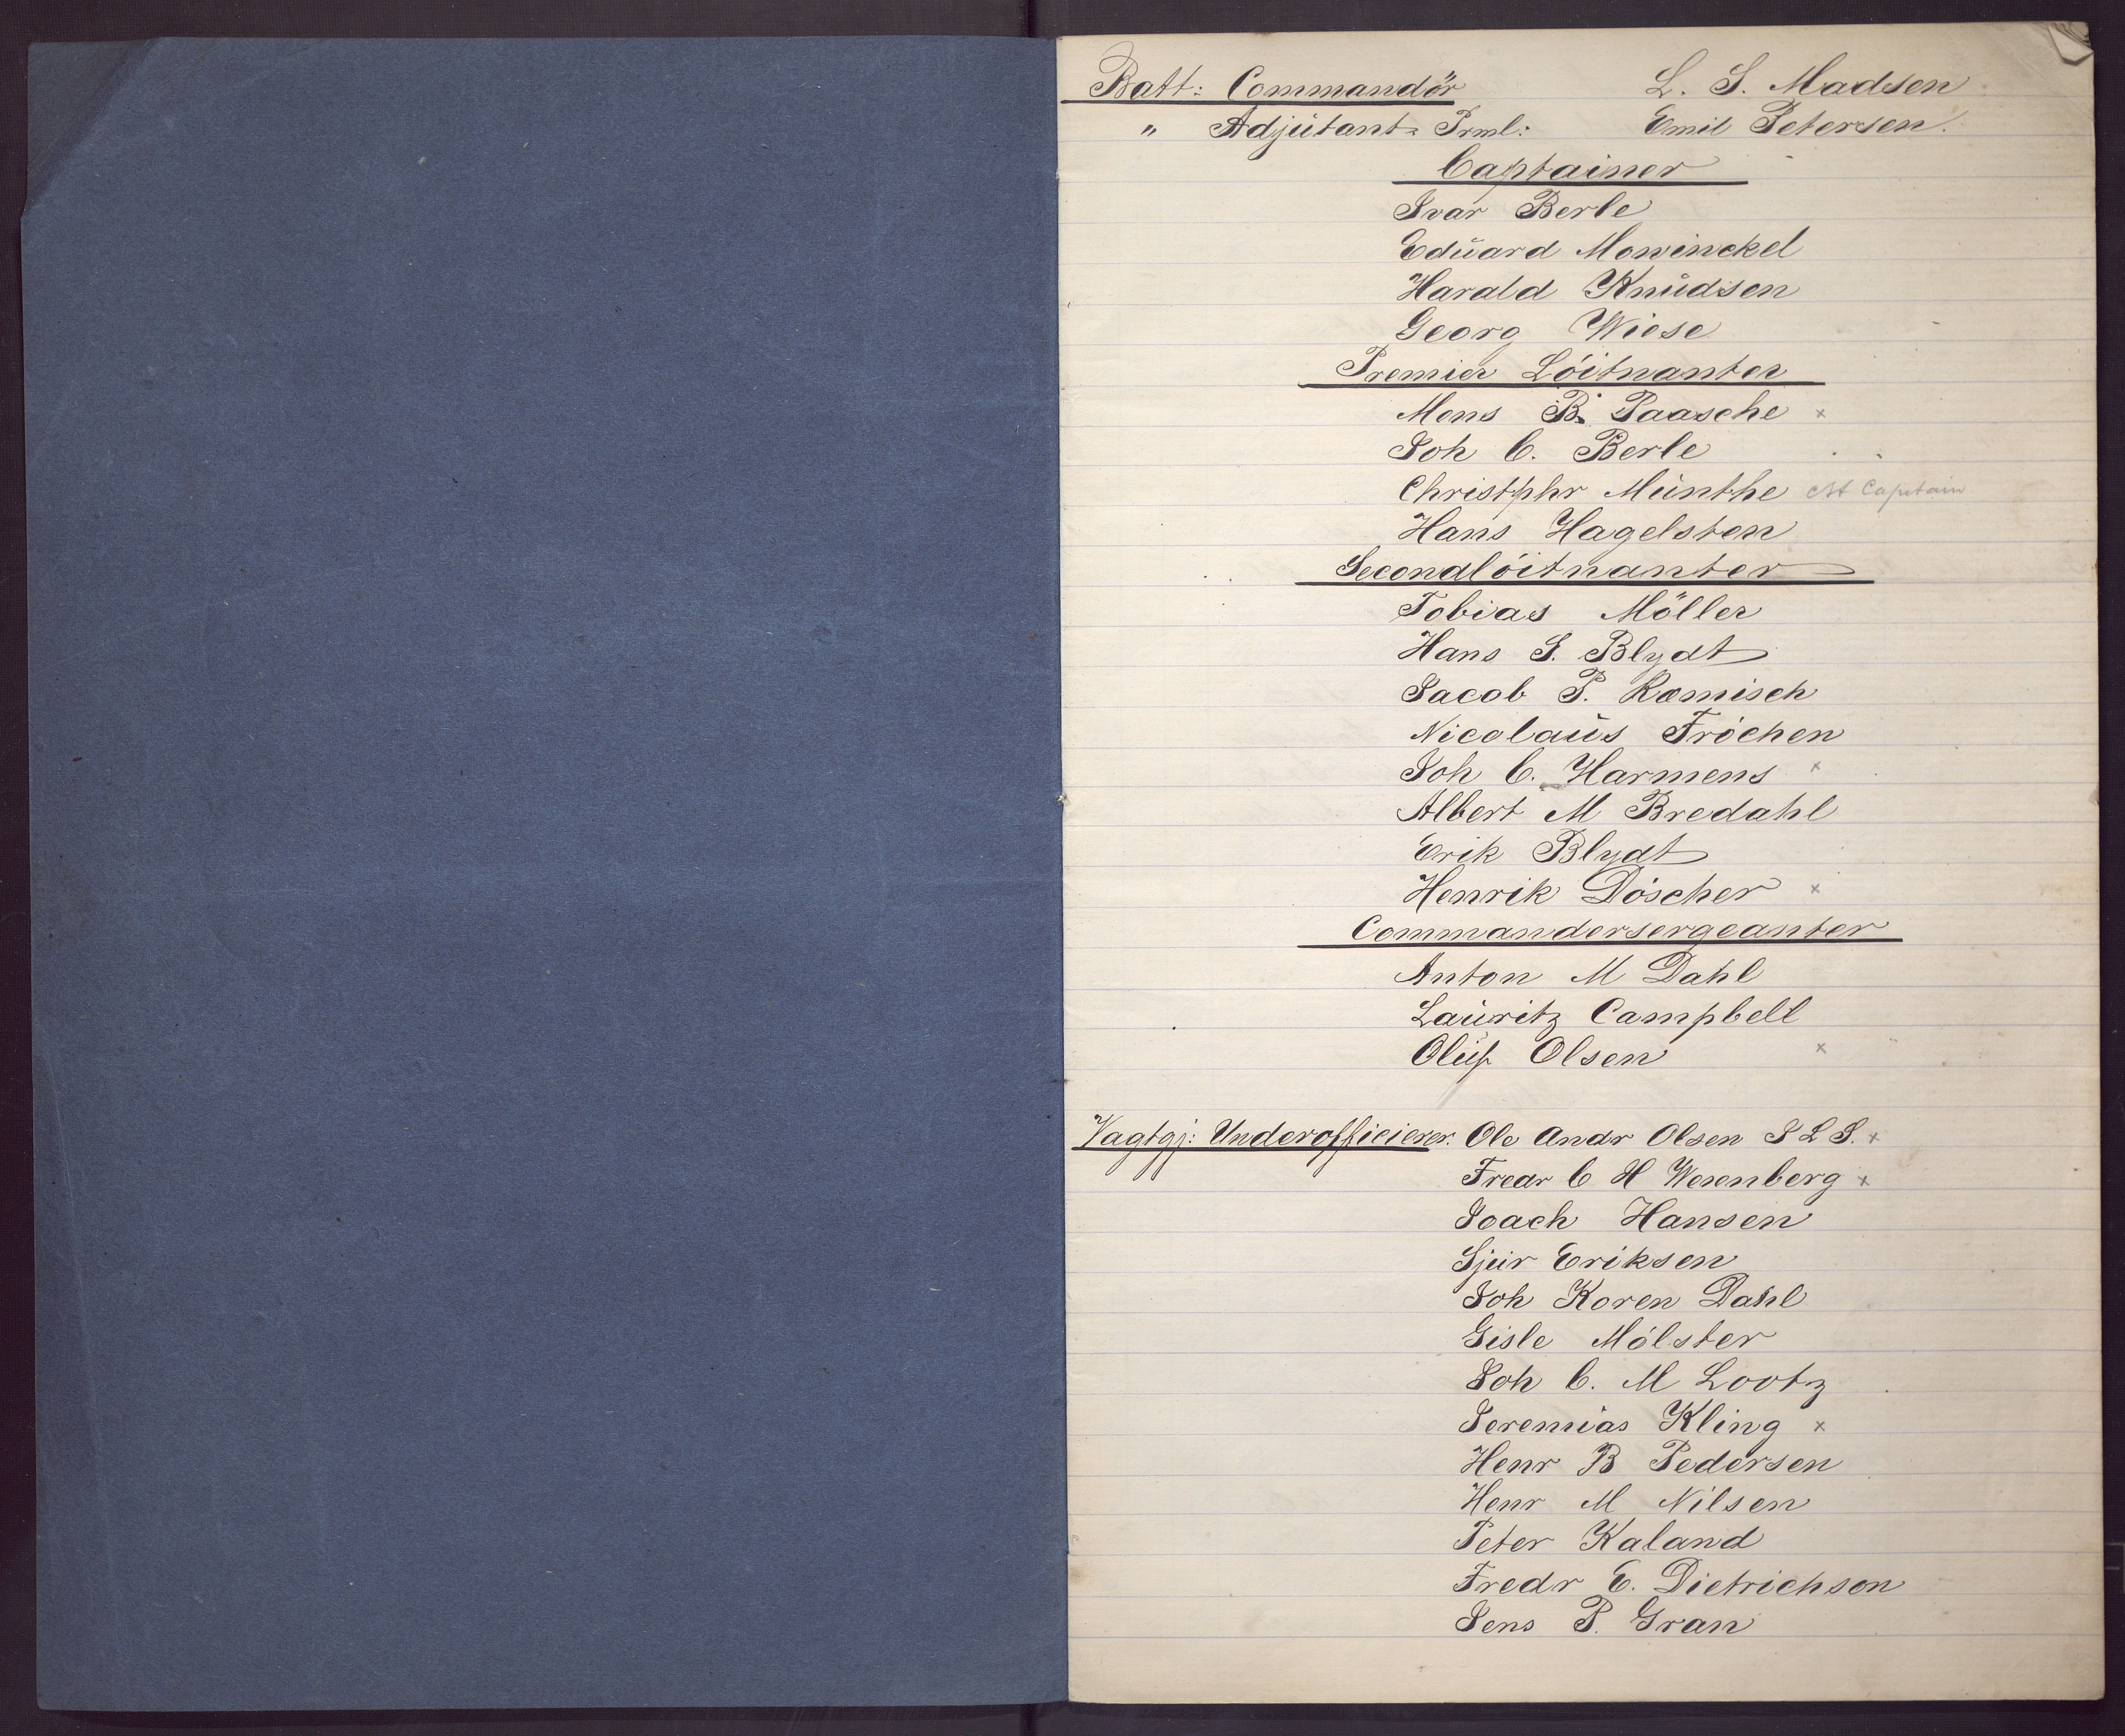 Batt: Commandör L. S. Madsen
" Adjütant-Prml: Emil Petersen.
Captainer
Ivar Berle
Edüard Mowinckel
Harald Knüdsen
Georg Wiese
Premier Löitnanter
Mons B. Paasche x
Joh C. Berle
Christphr Münthe Captain
Hans Hagelsten
Secondlöitnanter
Tobias Möller
Hans J. Blydt
Jacob P. Romisch
Nicolaüs Fröchen
Joh C. Harmens x
Albert M Bredahl
Erik Blydt
Henrik Döscher x
Commandersergeanter
Anton M Dahl
Laüritz Campbell
Olüf Olsen x
Vagtgj: Underofficierer. Ole Andr Olsen S L S. x
Fredr C H Wesenberg x
Joach Hansen
Sjür Eriksen
Joh Koren Dahl
Gisle Mölster
Joh C. M Lootz
Jeremias Kling x
Henr B Pedersen
Henr M Nilsen
Peter Kaland
Fredr E. Dietrichson
Jens P. Gran